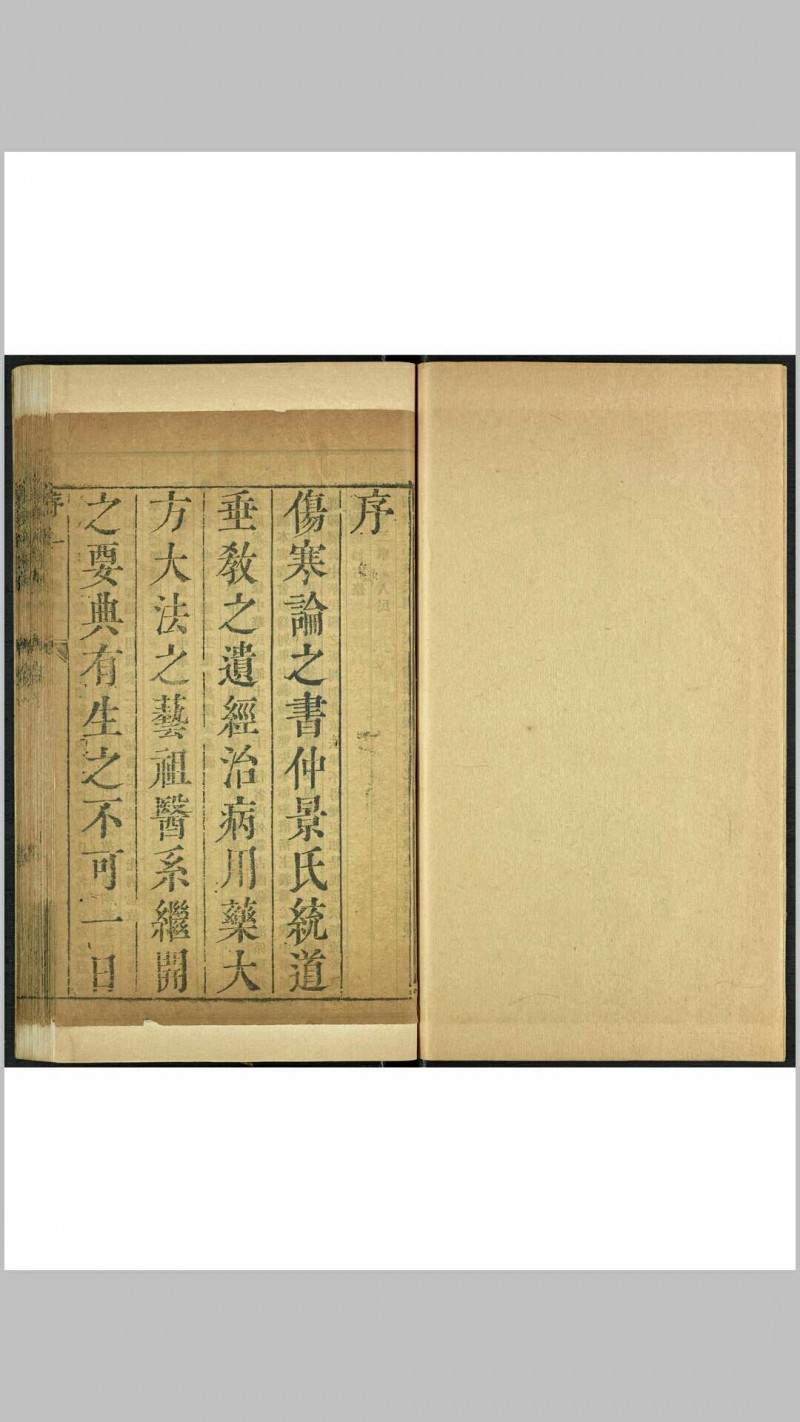 序
傷寒論之書仲景氏統道
垂敎之遺經治病用藥大
方大法之藝祖醫系繼開
之要典有生之不可一日
序 一